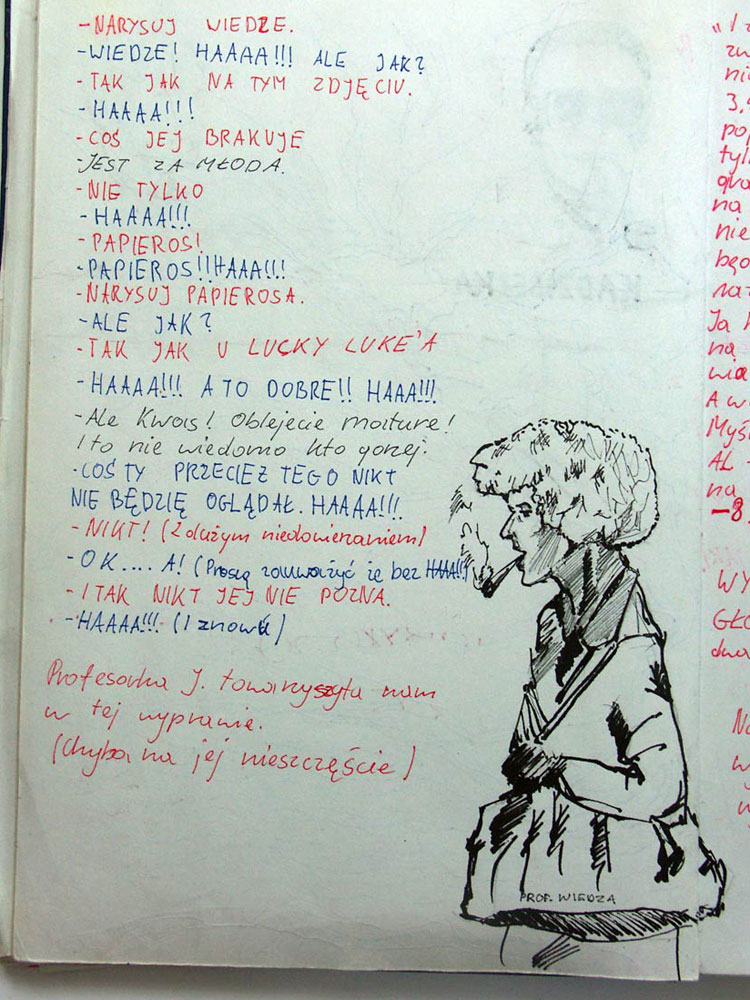 - NARYSUJ WIEDZE.
- WIEDZE! HAAAA!!! ALE JAK?
- TAK JAK NA TYM ZDJĘCIU.
- HAAAA!!!
- COŚ JEJ BRAKUJE
- JEST ZA MŁODA.
- NIE TYLKO
- HAAAA!!!
- PAPIEROS!
- PAPIEROS!!HAAA!!!
- NARYSUJ PAPIEROSA.
- ALE JAK?
- TAK JAK U LUCKY LUKE'A
- HAAAA!!! A TO DOBRE!! HAAA!!!
- Ale Kwas! Oblejecie maturę!
I to nie wiadomo kto gorzej.
- COŚ TY PRZECIEŻ TEGO NIKT
NIE BĘDZIĘ OGLĄDAŁ. HAAAA!!!
- NIKT! (Z dużym niedowierzaniem)
- OK.... A! (Proszę zauważyć że bez HAAA!!!)
- I TAK NIKT JEJ NIE POZNA.
- HAAAA!!! (I znowu)
Profesorka J. towarzyszyła nam
w tej wyprawie.
(Chyba na jej nieszczęście)
PROF. WIEDZA
„I z
nie
3,
pop
tyl
na
nie
będ
Ja
na
wia
A w
Myś
AL
na
-8.
WY
GŁO
dwa